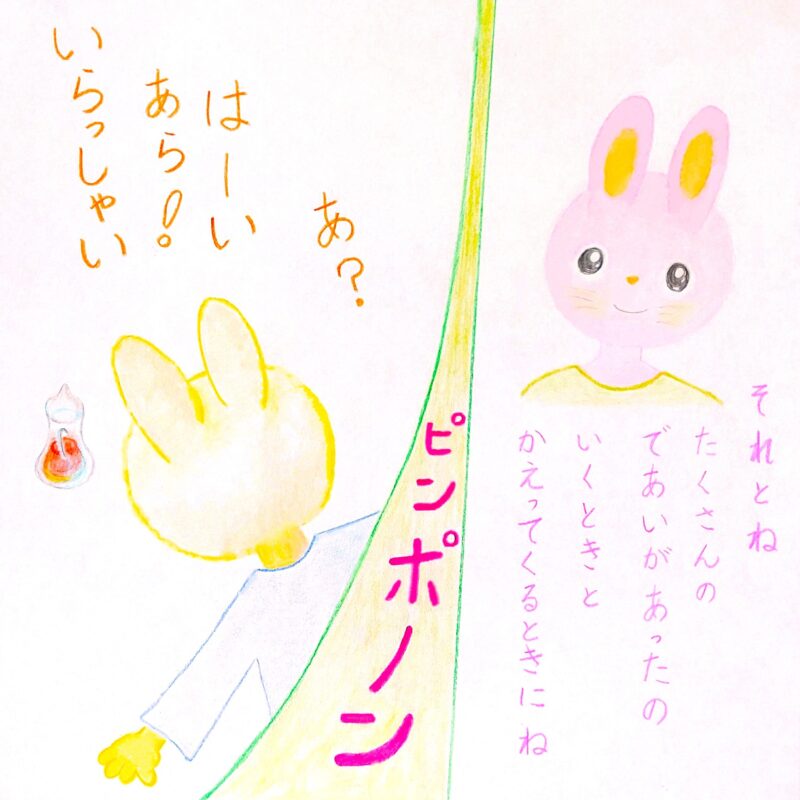 それとね
たくさんの
であいがあったの
いくときと
かえってくるときにね
ピンポノン
あ?
はーい
あら!
いらっしゃい